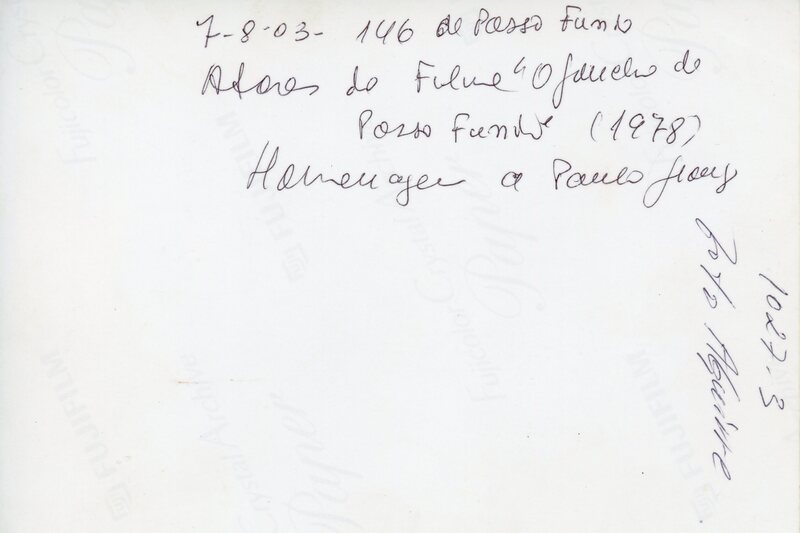 7-8-03- 146 de Passo Fundo
Atores do Filme "O Gaucho de
Passo Fundo" (1978)
Homenagem a Paulo
Foto
1027-3
FUJIFILM
Fujicolor Crystal Archive
FUJIFILM
Fujicolor Crystal
FUJIFILM
Crystal Archive
Fujicolor
FUJIFILM